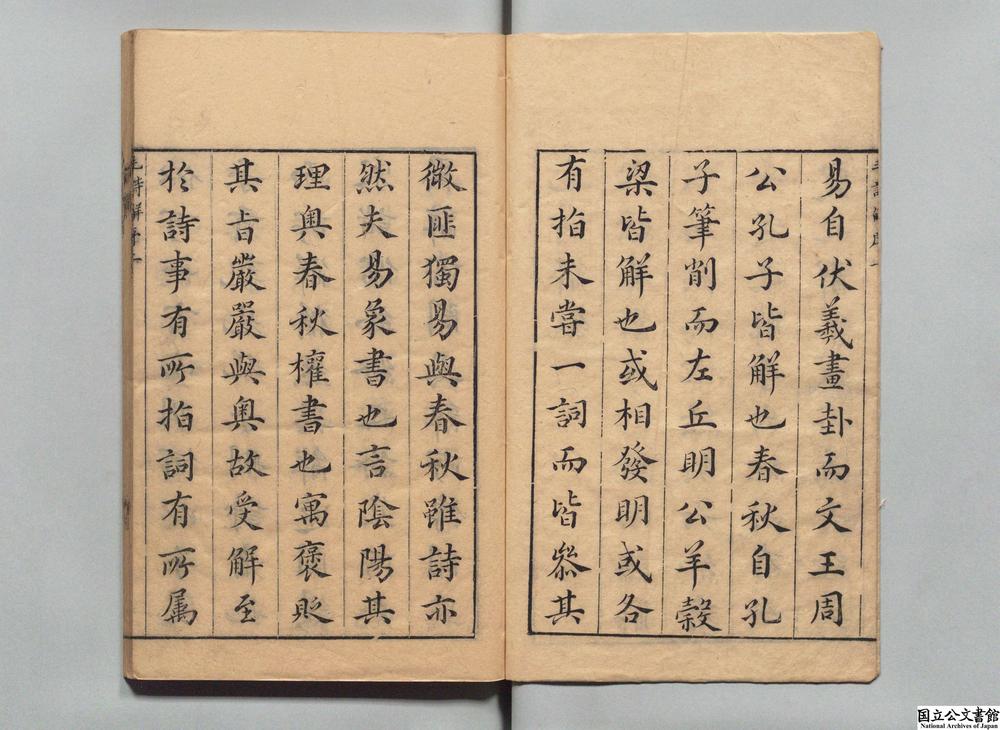 易自伏羲畫卦而文王周
公孔子皆解也春秋自孔
子筆削而左丘明公羊穀
梁皆解也或相發明或各
有指未嘗一詞而皆叅其
微匪獨易與春秋雖詩亦
然夫易象書也言陰陽其
理奧春秋權書也寓褒貶
其旨嚴嚴與奧故受解至
於詩事有所指詞有所属
毛詩解序二
国立公文書館
National Archives of Japan